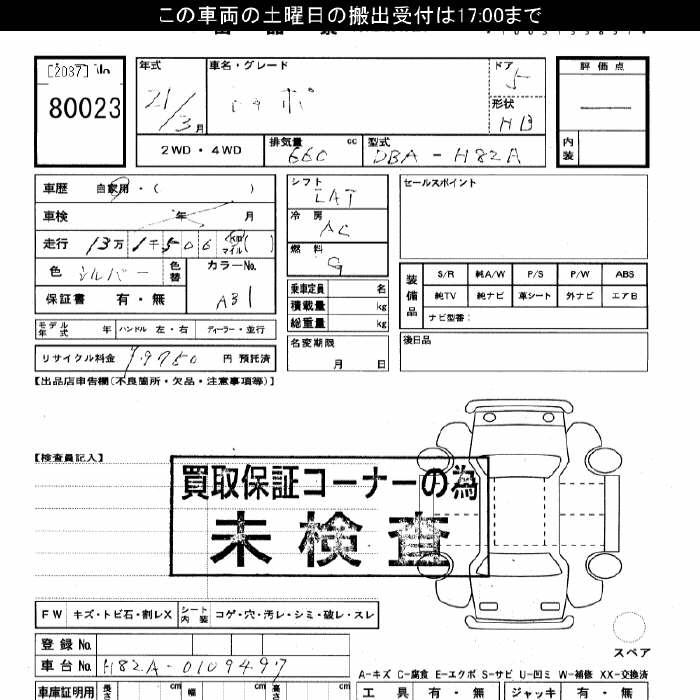 この車両の土曜日の搬出受付は17:00まで
[2037] No
80023
年式 車名・グレード ドア 評価点
21/3月 トッポ 5
形状
HB
2WD・4WD 排気量 660 cc 型式 DBA-H82A 内装
車歴 自家用・( )
車検 年 月
走行 13万 1千506 km マイル( )
色 シルバー 色替 カラーNo. A31
保証書 有・無
モデル年式 年 ハンドル 左・右 ディーラー・並行
リサイクル料金 円 預託済
シフト LAT
冷房 AC
燃料 G
乗車定員 名
積載量 kg
総重量 kg
名変期限 月 日
セールスポイント
装備品 S/R 純A/W P/S P/W ABS
純TV 純ナビ 革シート 外ナビ エアB
ナビ型番:
後日品
【出品店申告欄(不良箇所・欠品・注意事項等)】
【検査員記入】
買取保証コーナーの為
未検査
FW キズ・トビ石・割レX シート内装 コゲ・穴・汚レ・シミ・破レ・スレ
登録No.
車台No. H82A-0109497
車庫証明用 長さ cm 幅 cm 高さ cm
スペア
A-キズ C-腐食 E-エクボ S-サビ U-凹ミ W-補修 XX-交換済
工具 有・無 ジャッキ 有・無